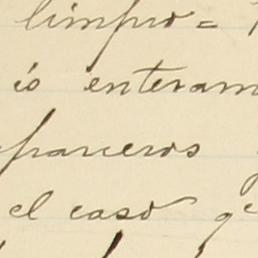 limpio =
is enteram
parceros
el caso qe